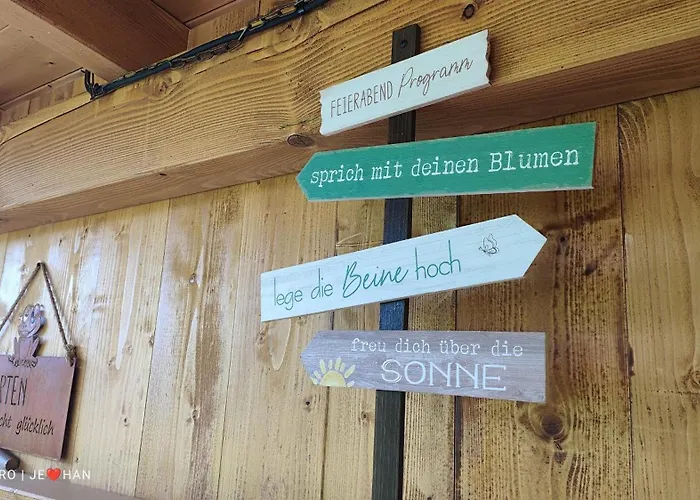 FEIERABEND Programm
sprich mit deinen Blumen
lege die Beine hoch
freu dich über die
SONNE
glücklich
RO | JE❤HAN